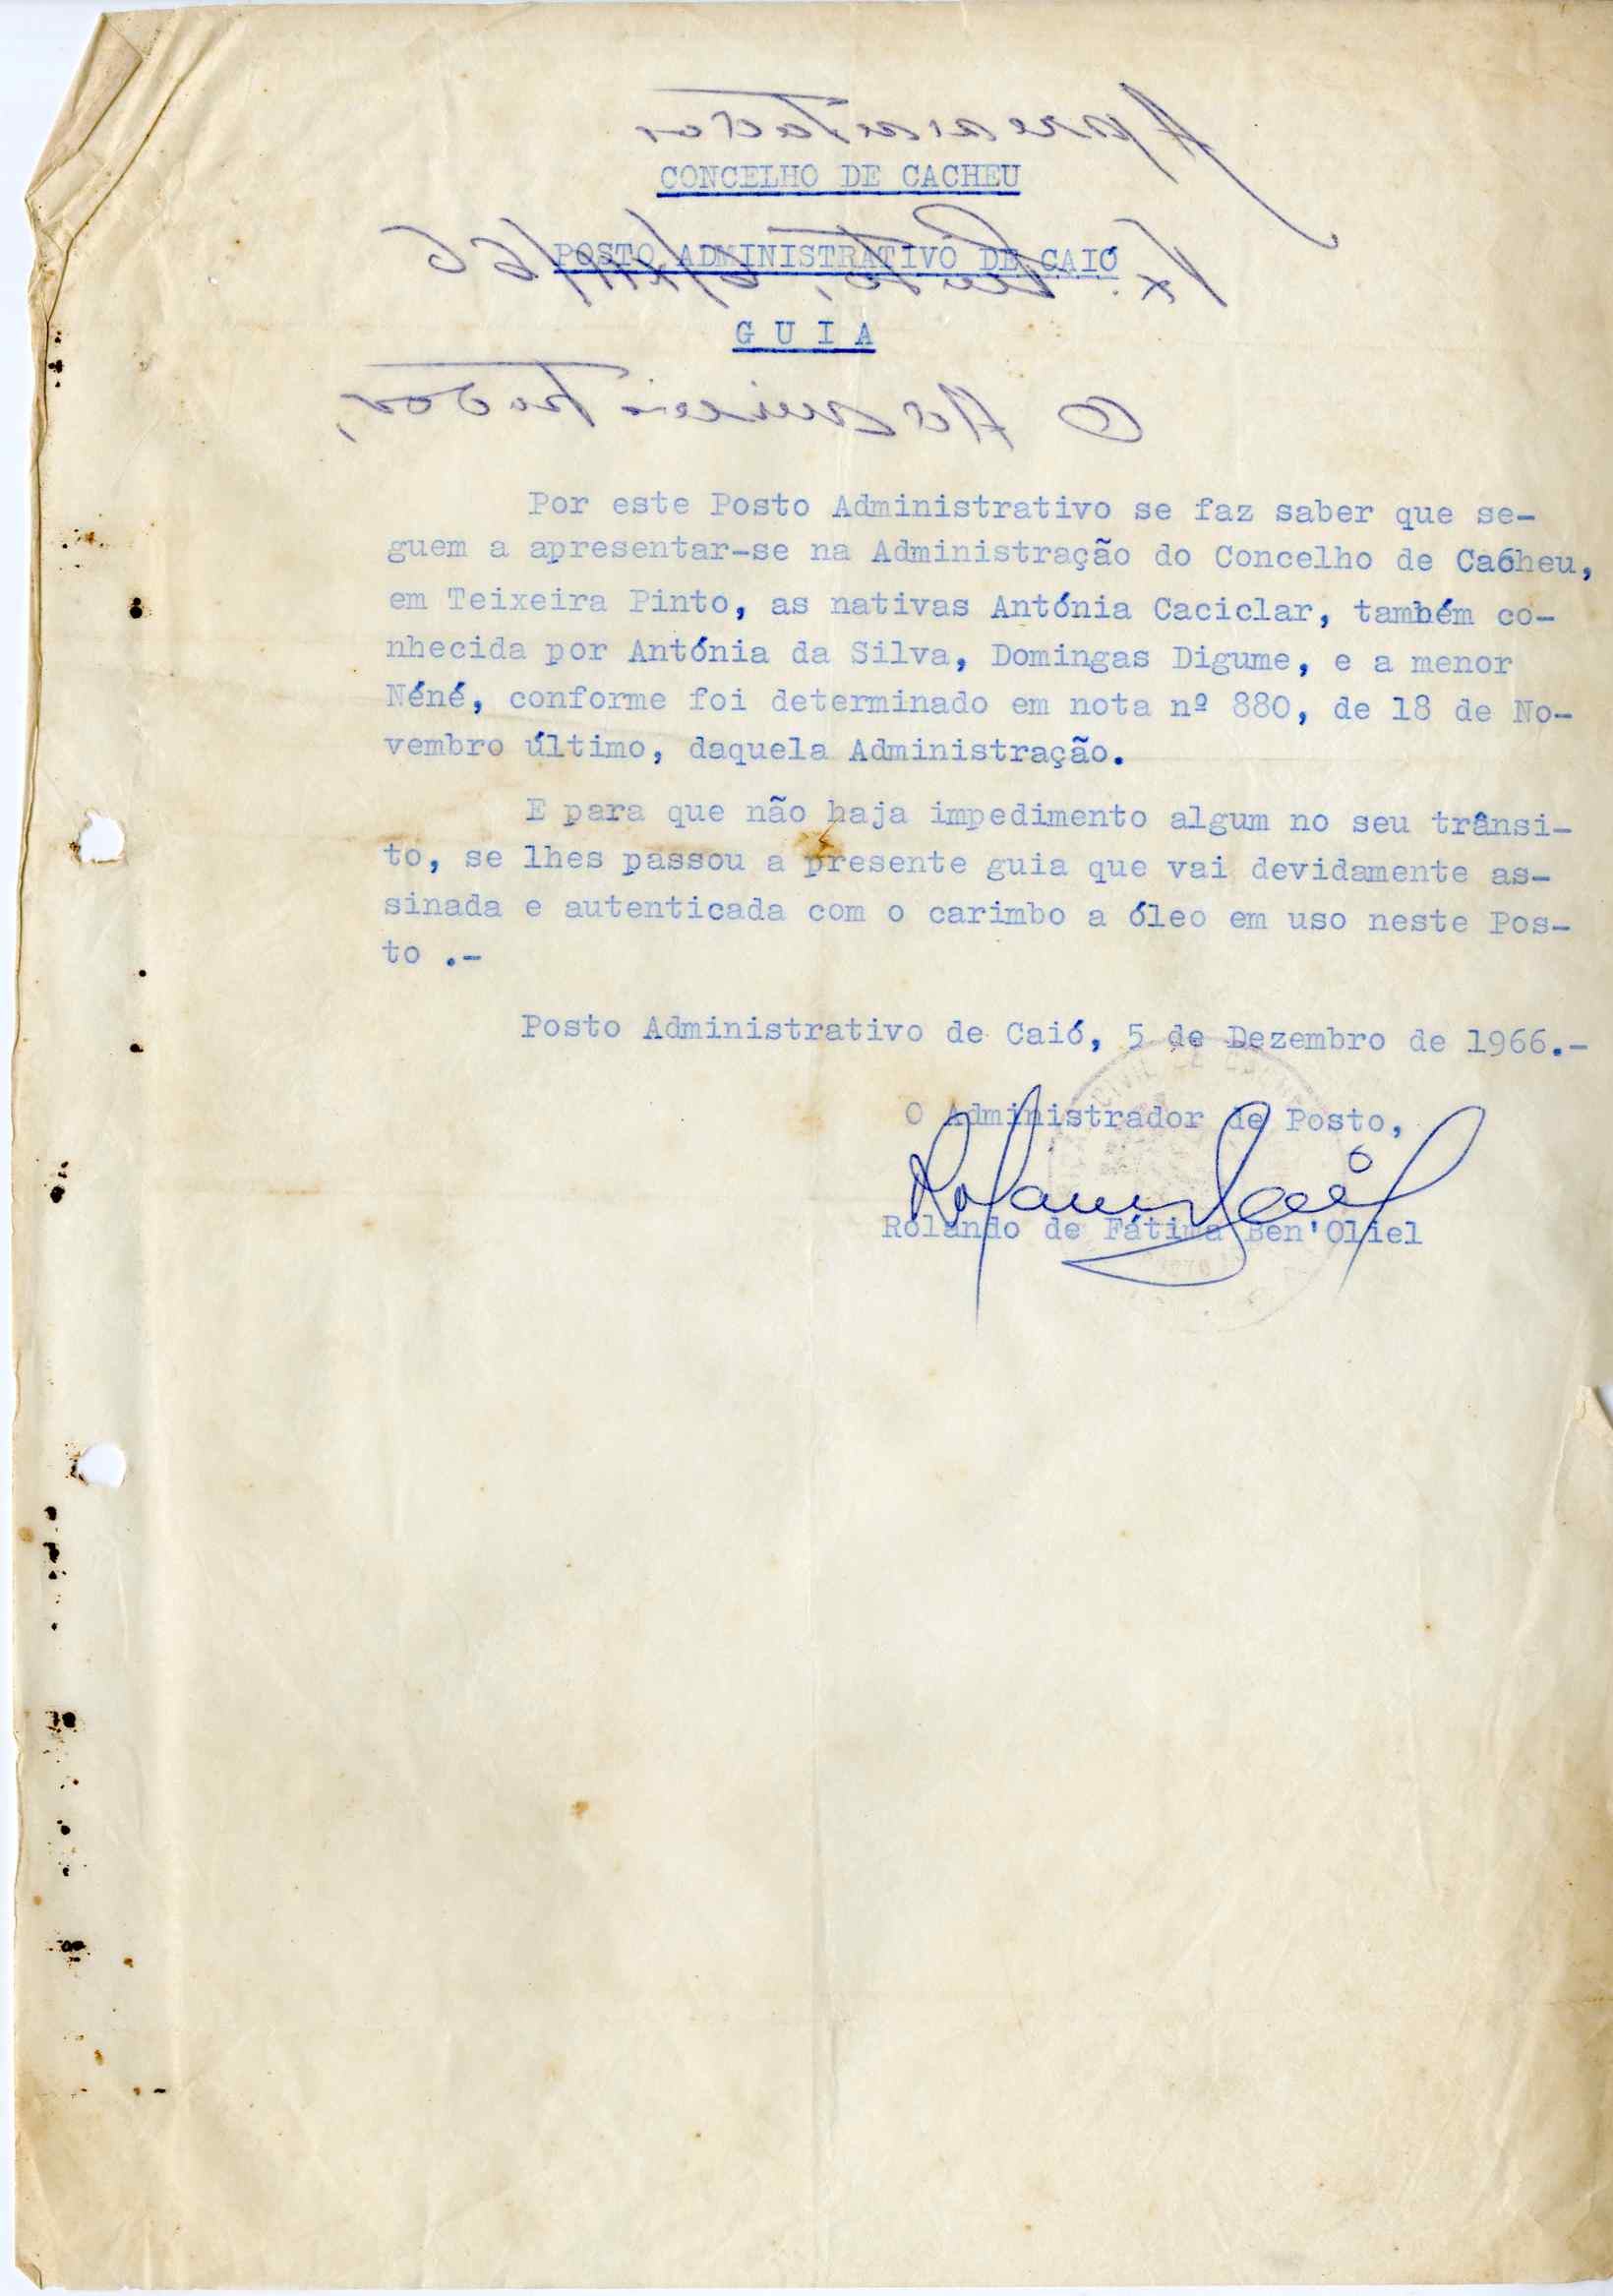 Apresentados
CONCELHO DE CACHEU
Tx. Pinto, 6/XII/66
POSTO ADMINISTRATIVO DE CAIÓ
G U I A
O Administrador,
Por este Posto Administrativo se faz saber que se-
guem a apresentar-se na Administração do Concelho de Cacheu,
em Teixeira Pinto, as nativas António Caciclar, também co-
nhecida por Antónia da Silva, Domingas Digume, e a menor
Néné, conforme foi determinado em nota nº 880, de 18 de No-
vembro último, daquela Administração.
E para que não haja impedimento algum no seu trânsi-
to, se lhes passou a presente guia que vai devidamente as-
sinada e autenticada com o carimbo a óleo em uso neste Pos-
to .-
Posto Administrativo de Caió, 5 de Dezembro de 1966.-
O Administrador de Posto,
Rolando de Fátima Ben'Oliel